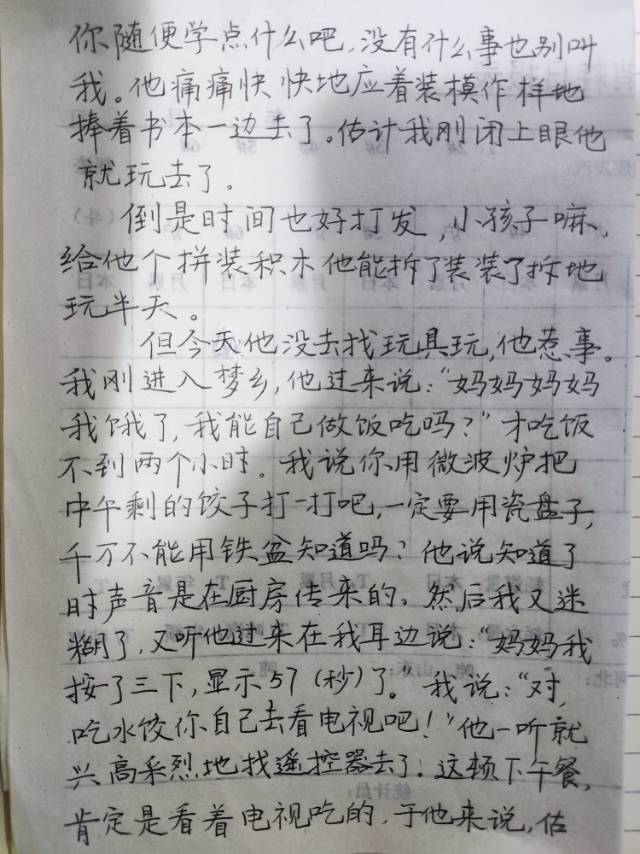 你随便学点什么吧,没有什么事也别叫
我。他痛痛快快地应着装模作样地
捧着书本一边去了。估计我刚闭上眼他
就玩去了。
倒是时间也好打发,小孩子嘛,
给他个拼装积木他能拆了装装了拆地
玩半天。
但今天他没去找玩具玩,他惹事。
我刚进入梦乡,他过来说:“妈妈妈妈
我饿了,我能自己做饭吃吗?”才吃饭
不到两个小时。我说你用微波炉把
中午剩的饺子打一打吧,一定要用瓷盘子,
千万不能用铁盆知道吗?他说知道了
时声音是在厨房传来的。然后我又迷
糊了,又听他过来在我耳边说:“妈妈我
按了三下,显示57(秒)了。我说:“对,
吃水饺你自己去看电视吧!”他一听就
兴高采烈地找遥控器去了!这顿下午餐,
肯定是看着电视吃的,于他来说,估
统计员: